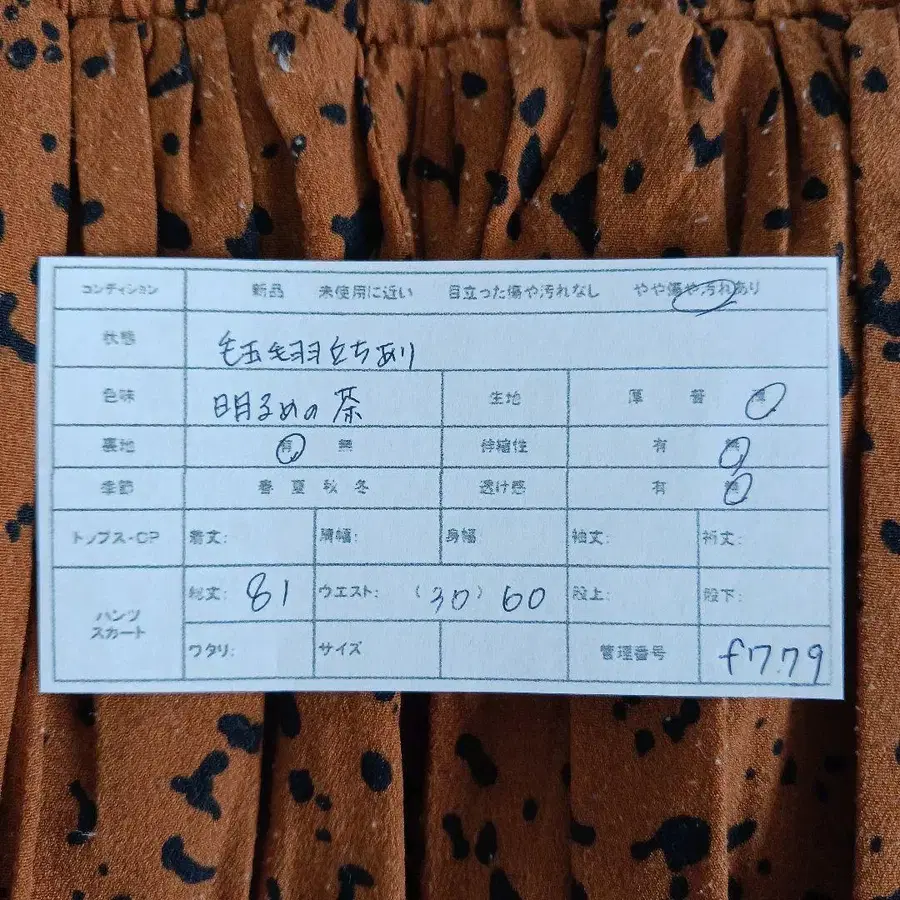 コンディション 新品 未使用に近い 目立った傷や汚れなし やや傷や汚れあり
状態 毛玉毛羽立ちあり
色味 明るめの茶 生地 厚 普 薄
裏地 有 無 伸縮性 有 無
季節 春 夏 秋 冬 透け感 有 無
トップス・OP 着丈: 肩幅: 身幅 袖丈: 裄丈:
パンツ
スカート
総丈: 81 ウエスト: (30) 60 股上: 股下:
ワタリ: サイズ 管理番号 f779